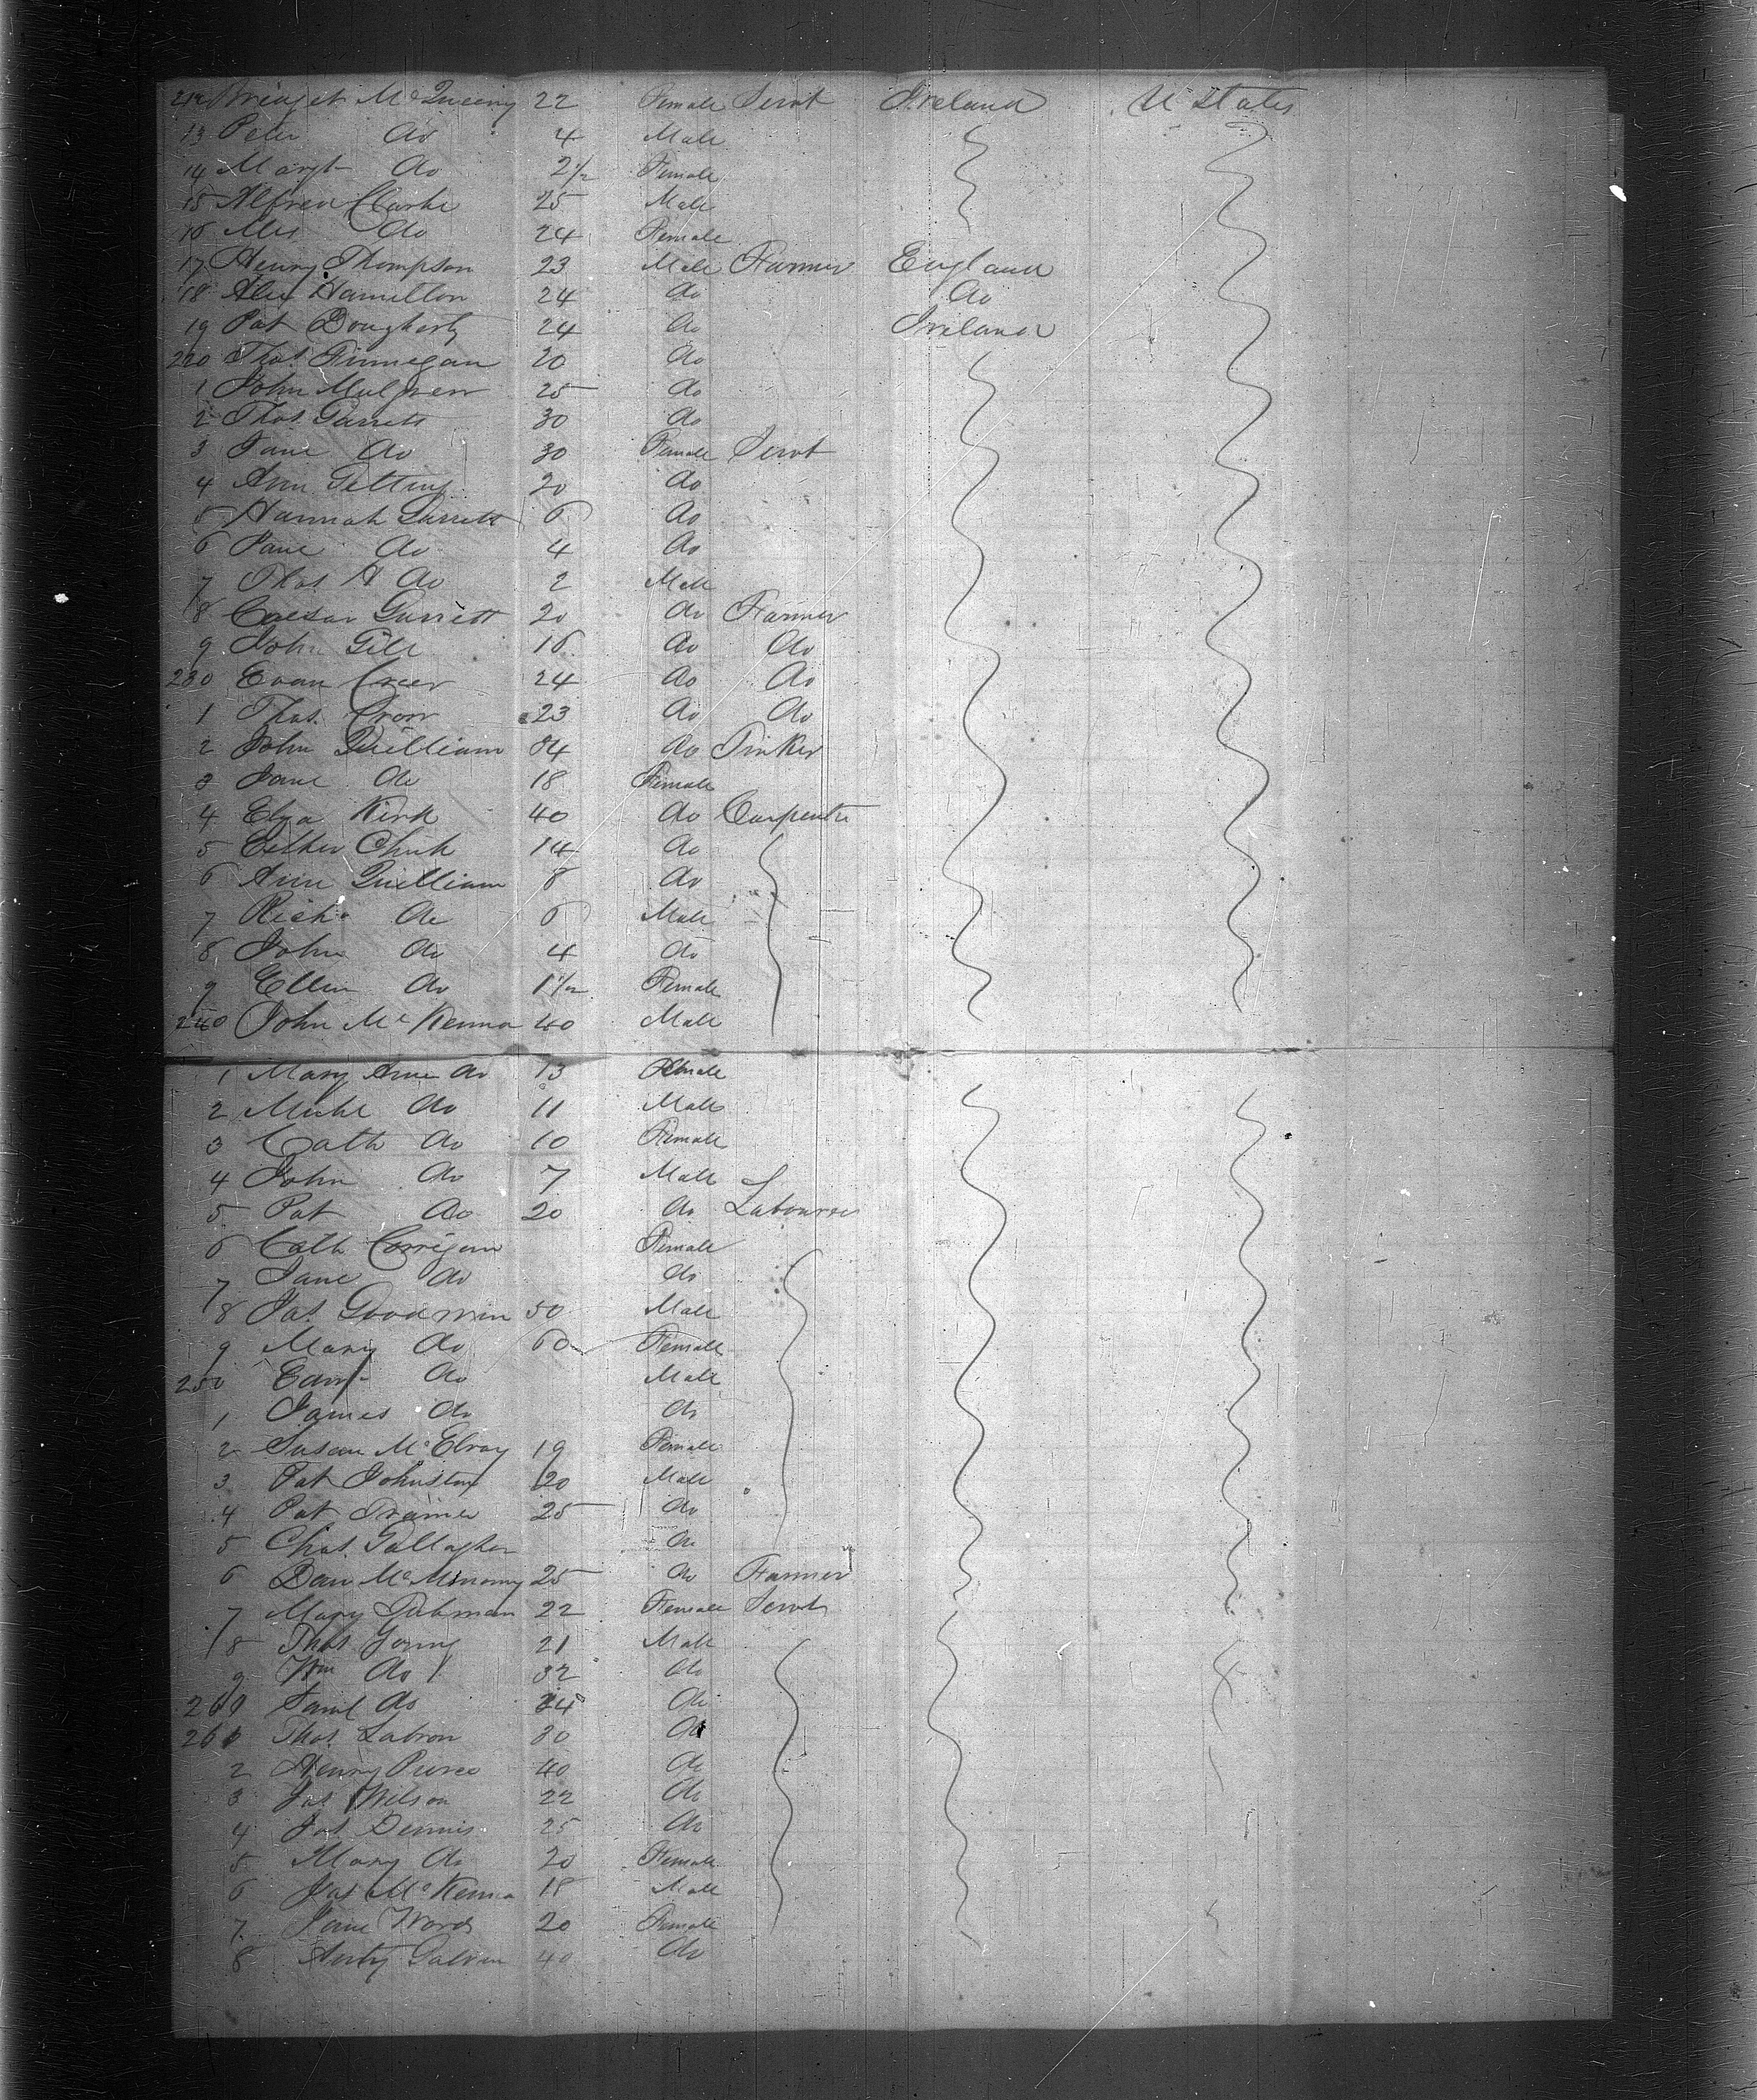 212 Bridget McQueeny 22 Female Servt Ireland U States
13 Peter do 4 Male
14 Margt do 2 1/2 Female
15 Alfred Clarke 25 Male
16 Mrs do 24 Female
17 Henry Thompson 23 Male Farmer England
18 Alex Hamilton 24 do do
19 Pat Dougherty 24 do Ireland
220 Thos Finnegan 20 do
1 John Mulgrew 25 do
2 Thos Garrett 30 do
3 Jane do 30 Female Servt
4 Ann Gelling 20 do
5 Hannah Garrett 6 do
6 Jane do 4 do
7 Thos H do 2 Male
8 Caesar Garrett 20 do Farmer
9 John Gill 16 do do
230 Evan Creer 24 do do
1 Thos Crow 23 do do
2 John Quilliam 34 do Tinker
3 Jane do 18 Female
4 Elza Kirk 40 do Carpentr
5 Esther 14 do
6 Ann Quilliam 8 do
7 Richd do 6 Male
8 John do 4 do
9 Ellen do 1 1/2 Female
240 John McKenna 40 Male
1 Mary Ann do 13 Female
2 Michl do 11 Male
3 Cath do 10 Female
4 John do 7 Male
5 Pat do 20 do Labourer
6 Cath Corrigan Female
7 Jane do do
8 Jas Goodwin 50 Male
9 Mary do 60 Female
250 Edwd do Male
1 James do do
2 Susan McElroy 19 Female
3 Pat Johnston 20 Male
4 Pat Trainer 25 do
5 Chas Gallagher do
6 Dan McMenomy 25 do Farmer
7 Mary 22 Female Servt
8 Thos Young 21 Male
9 Wm do 32 do
260 Saml do 24 do
261 Thos Labron 30 do
2 Henry Pierce 40 do
3 Jas Wilson 22 do
4 Jas Dennis 25 do
5 Mary do 20 Female
6 Jas McKenna 18 Male
7 Jane Woods 20 Female
8 Galvin 40 do